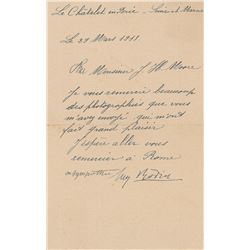 Le Châtelet en Brie - Seine et Marne
Le 29 Mars 1911
Monsieur J. H. Moore
Je vous remercie beaucoup
des photographies que vous
m'avez envoyé qui m'ont
fait grand plaisir
J'espère aller vous
remercier à Rome
Aug Rodin